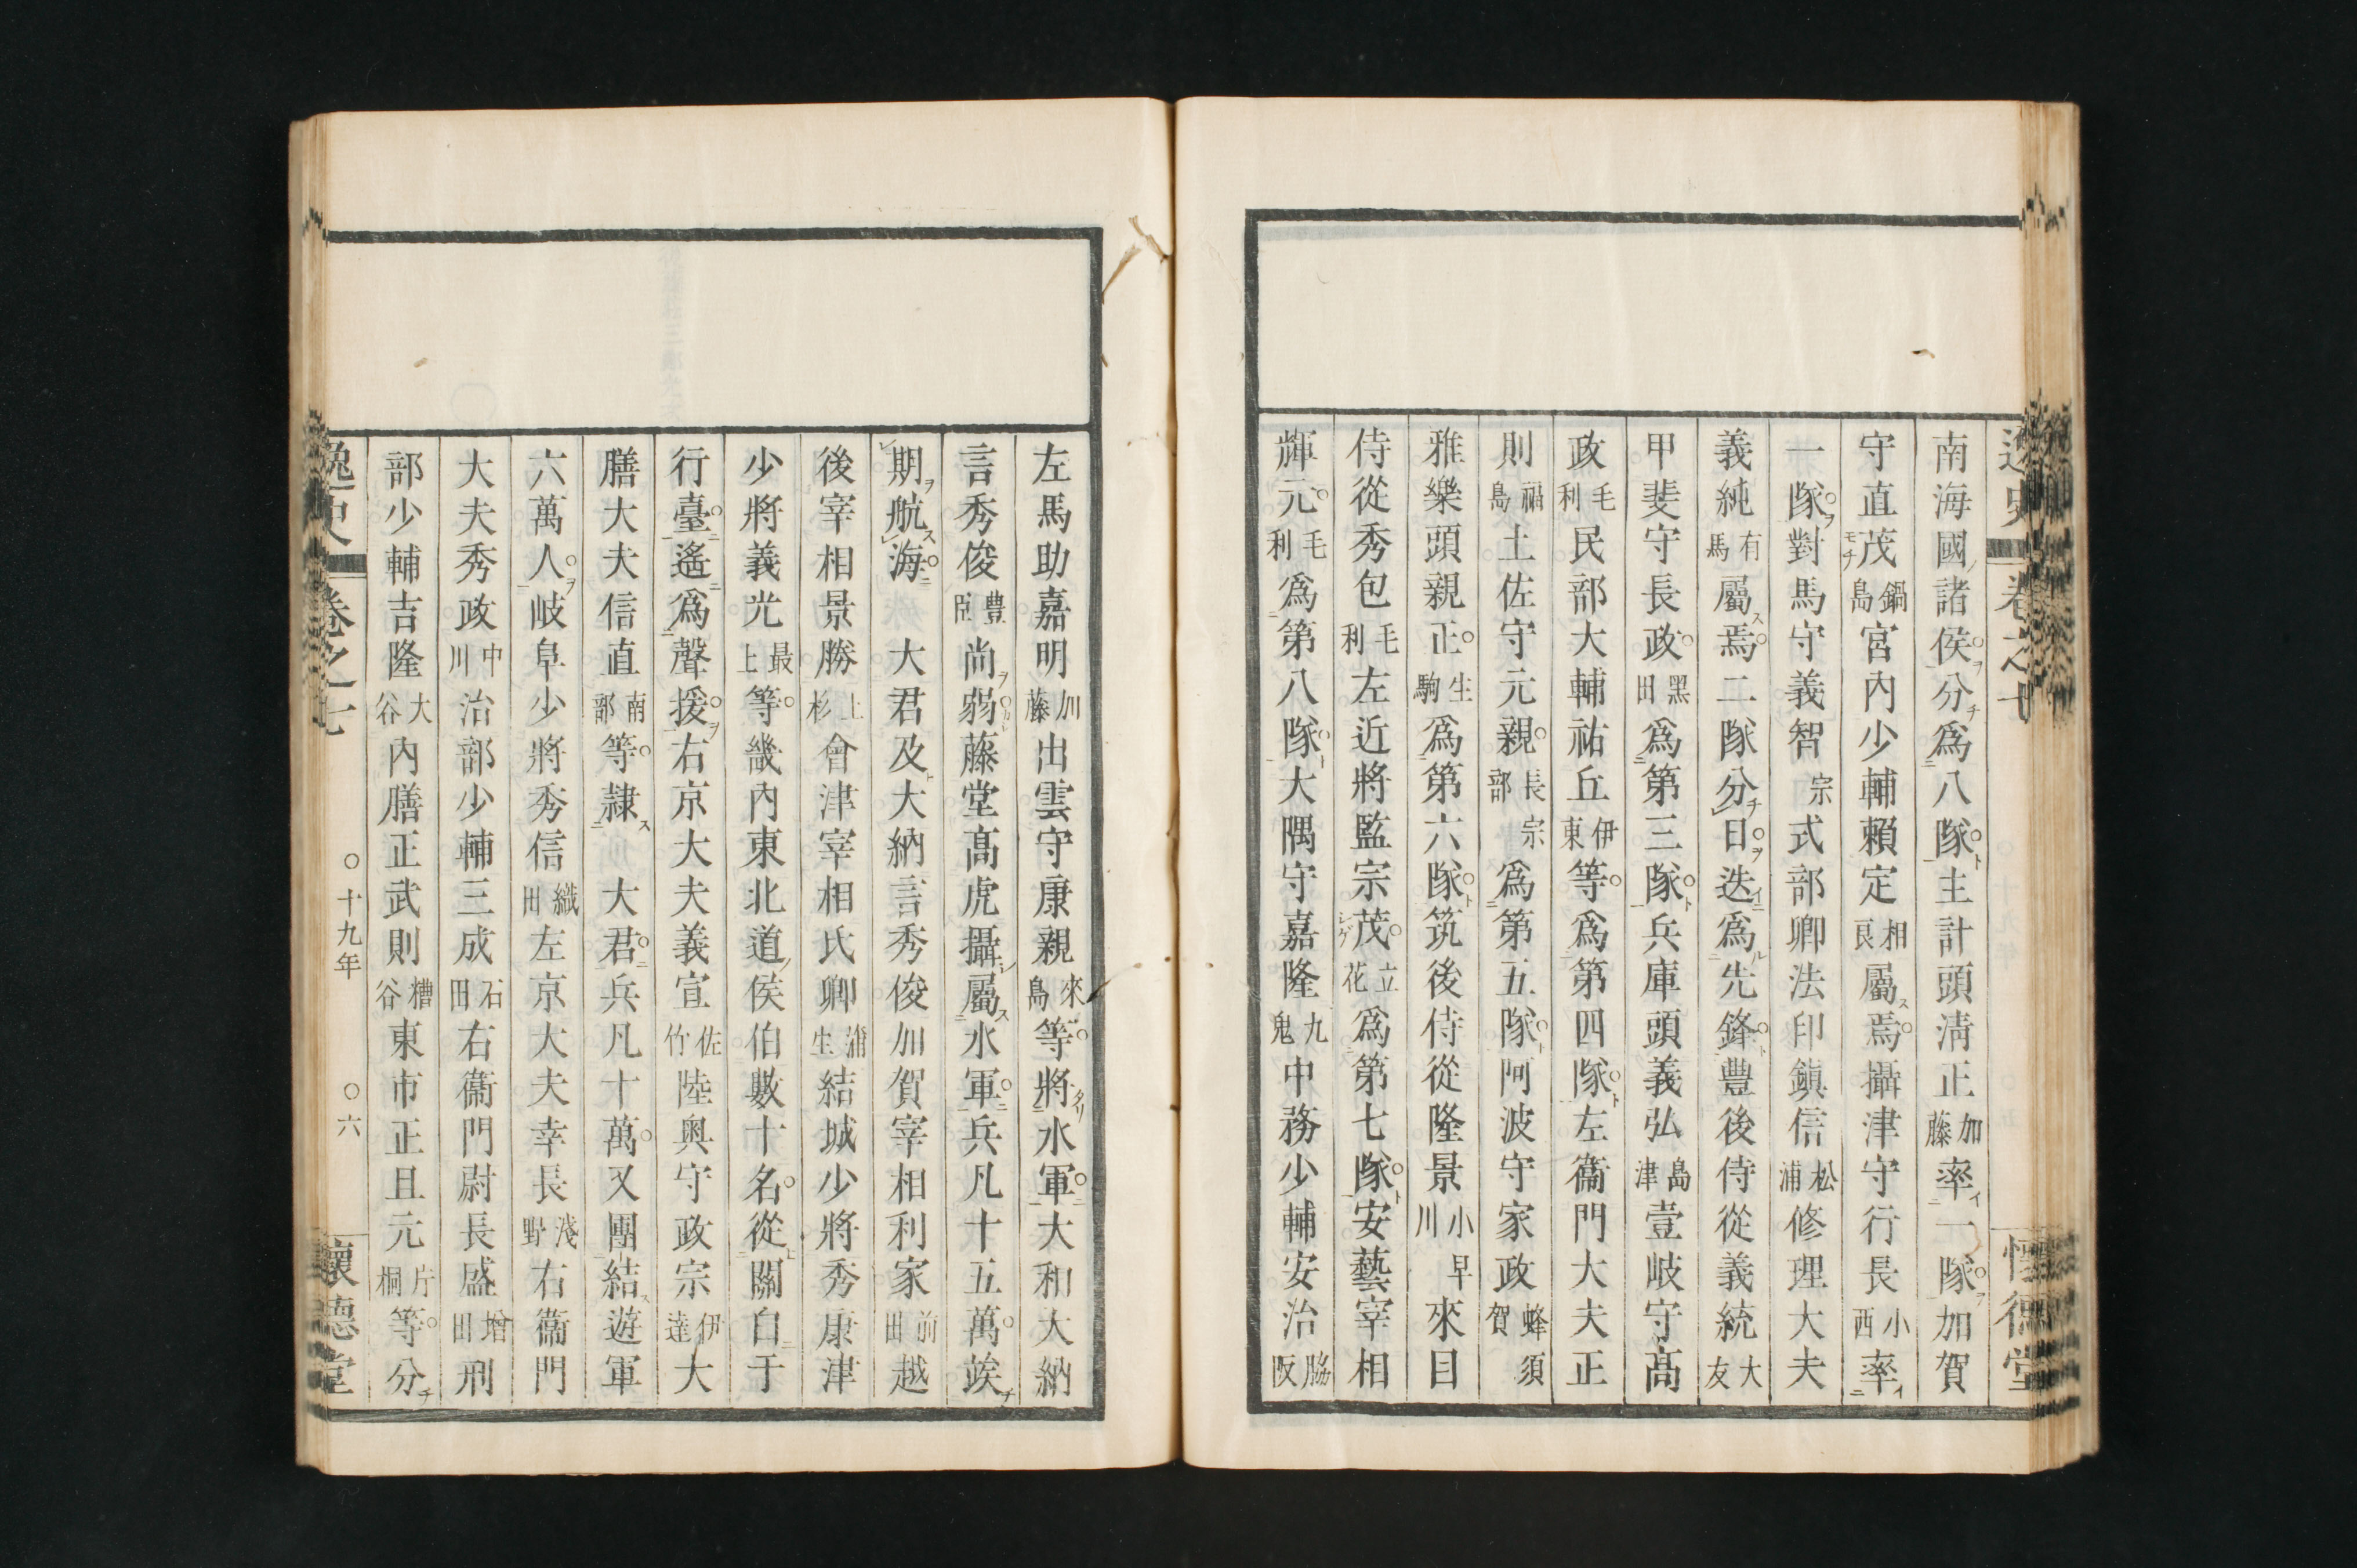 南海國ノ諸侯ヲ分チ爲八隊ト主計頭淸正加藤率イ一隊ヲ加賀
守直茂モチ鍋島宮內少輔賴定相良屬ス焉攝津守行長小西率イ
一隊ヲ對馬守義智宗式部卿法印鎭信松浦修理大夫
義純有馬屬ス焉二隊分チ日ヲ迭イニ爲ル先鋒ト豐後侍從義統大友
甲斐守長政黑田爲第三隊ト兵庫頭義弘島津壹岐守高
政毛利民部大輔祐丘伊東等爲第四隊ト左衞門大夫正
則福島土佐守元親長宗部爲第五隊ト阿波守家政蜂須賀
雅樂頭親正生駒爲第六隊ト筑後侍從隆景小早川來目
侍從秀包毛利左近將監宗茂シゲ立花爲第七隊ト安藝宰相
輝元毛利爲第八隊ト大隅守嘉隆九鬼中務少輔安治脇阪
左馬助嘉明加藤出雲守康親來島等將タリ水軍ニ大和大納
言秀俊豐臣尚ヲ弱藤堂高虎攝シ屬ス水軍ニ兵凡十五萬竢チ
期ヲ航ス海ニ 大君及ト大納言秀俊加賀宰相利家前田越
後宰相景勝上杉會津宰相氏卿蒲生結城少將秀康津
少將義光最上等畿內東北道ノ侯伯數十名從關白ニ于
行臺ニ遙ニ爲聲援ヲ右京大夫義宣佐竹陸奧守政宗伊達大
膳大夫信直南部等隷ス 大君ニ兵凡十萬又團結ス遊軍
六萬人ヲ岐阜少將秀信織田左京大夫幸長淺野右衞門
大夫秀政中川治部少輔三成石田右衞門尉長盛增田刑
部少輔吉隆大谷內膳正武則糟谷東市正且元片桐等分チ
逸史 卷之七 ○十九年 ○六 懷德堂